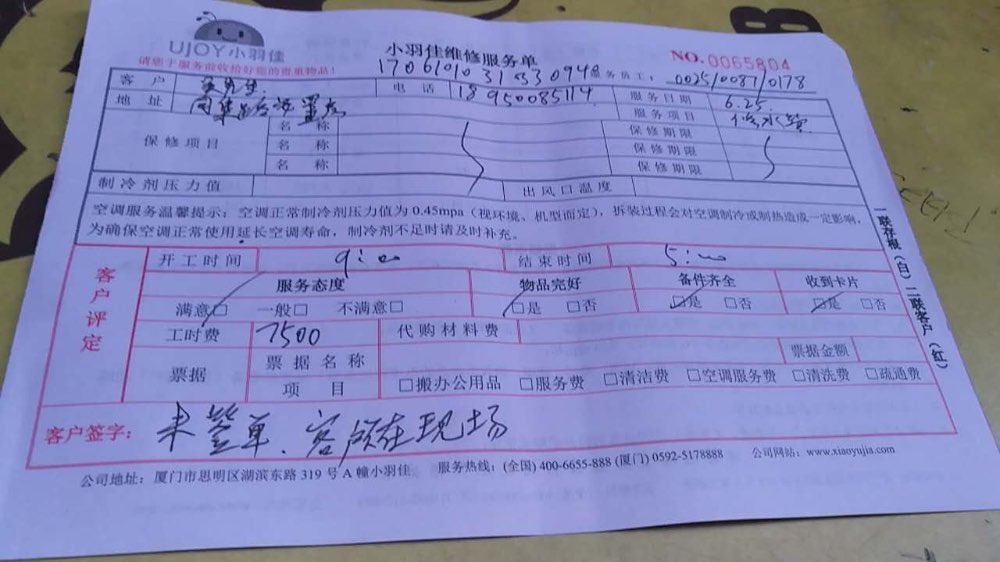 UJOY小羽佳
小羽佳维修服务单
NO.0065804
请您于服务前收拾好您的贵重物品!
服务员工: 0025/0087/0178
客户
电话 18950085114
服务日期 6.25
地址
服务项目 修水管
保修项目
名称 保修期限
名称 保修期限
名称 保修期限
制冷剂压力值 出风口温度
空调服务温馨提示:空调正常制冷剂压力值为 0.45mpa(视环境、机型而定),拆装过程会对空调制冷或制热造成一定影响,
为确保空调正常使用延长空调寿命,制冷剂不足时请及时补充。
客户评定
开工时间 9:00 结束时间 5:00
服务态度 物品完好 备件齐全 收到卡片
满意□ 一般□ 不满意□ □是 □否 □是 □否 □是 □否
工时费 7500 代购材料费
票据 票据名称 票据金额
项目 □搬办公用品 □服务费 □清洁费 □空调服务费 □清洗费 □疏通费
客户签字: 未签单、客户不在现场
公司地址:厦门市思明区湖滨东路 319 号 A 幢小羽佳 服务热线:(全国) 400-6655-888 (厦门) 0592-5178888 公司网站:www.xiaoyujia.com
一联存根(白)二联客户(红)